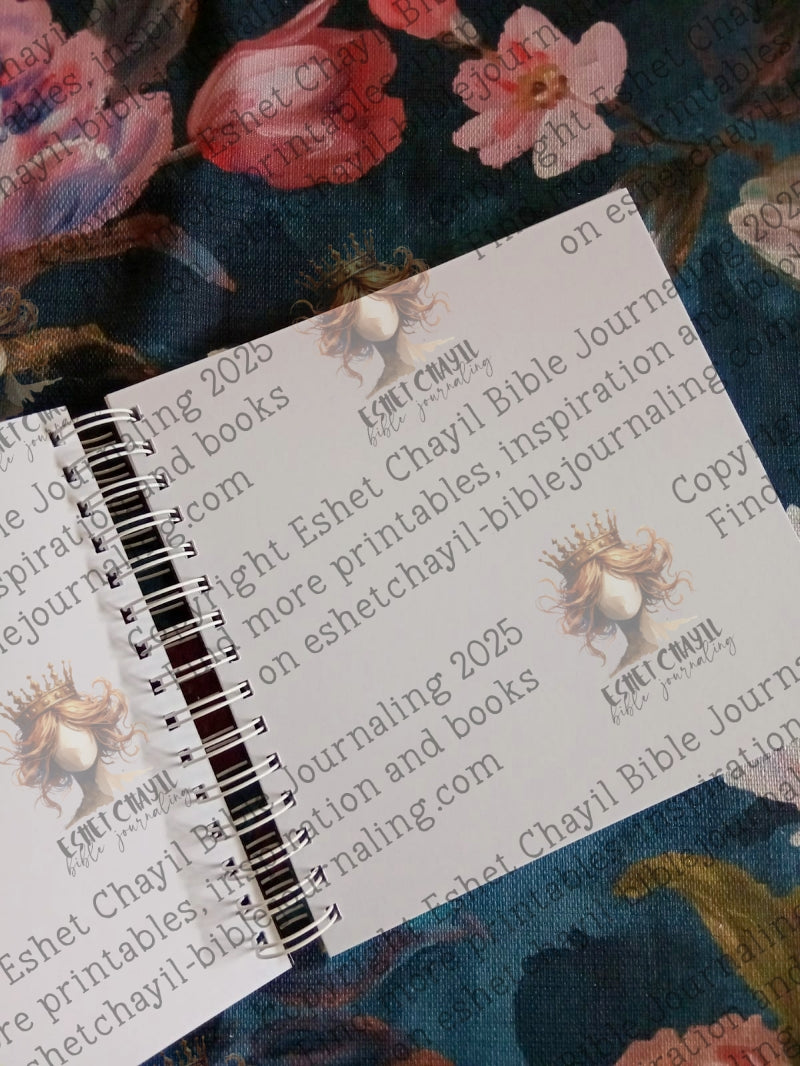 Eshet Chayil Bible
printables, inspiration
eshetchayil-biblejournaling
Copyright Eshet Chayil Bible
Find more printables
on
ESHET CHAYIL
bible journaling
Journaling 2025
inspiration and books
biblejournaling.com
Copyright Eshet Chayil Bible Journaling 2025
Find more printables, inspiration and books
on eshetchayil-biblejournaling.com
ESHET CHAYIL
bible journaling
Copyright
Find
ESHET CHAYIL
bible journaling
Eshet Chayil Bible Journaling 2025
more printables, inspiration and books
eshetchayil-biblejournaling.com
Eshet Chayil Bible
more printables, inspiration and
on eshetchayil